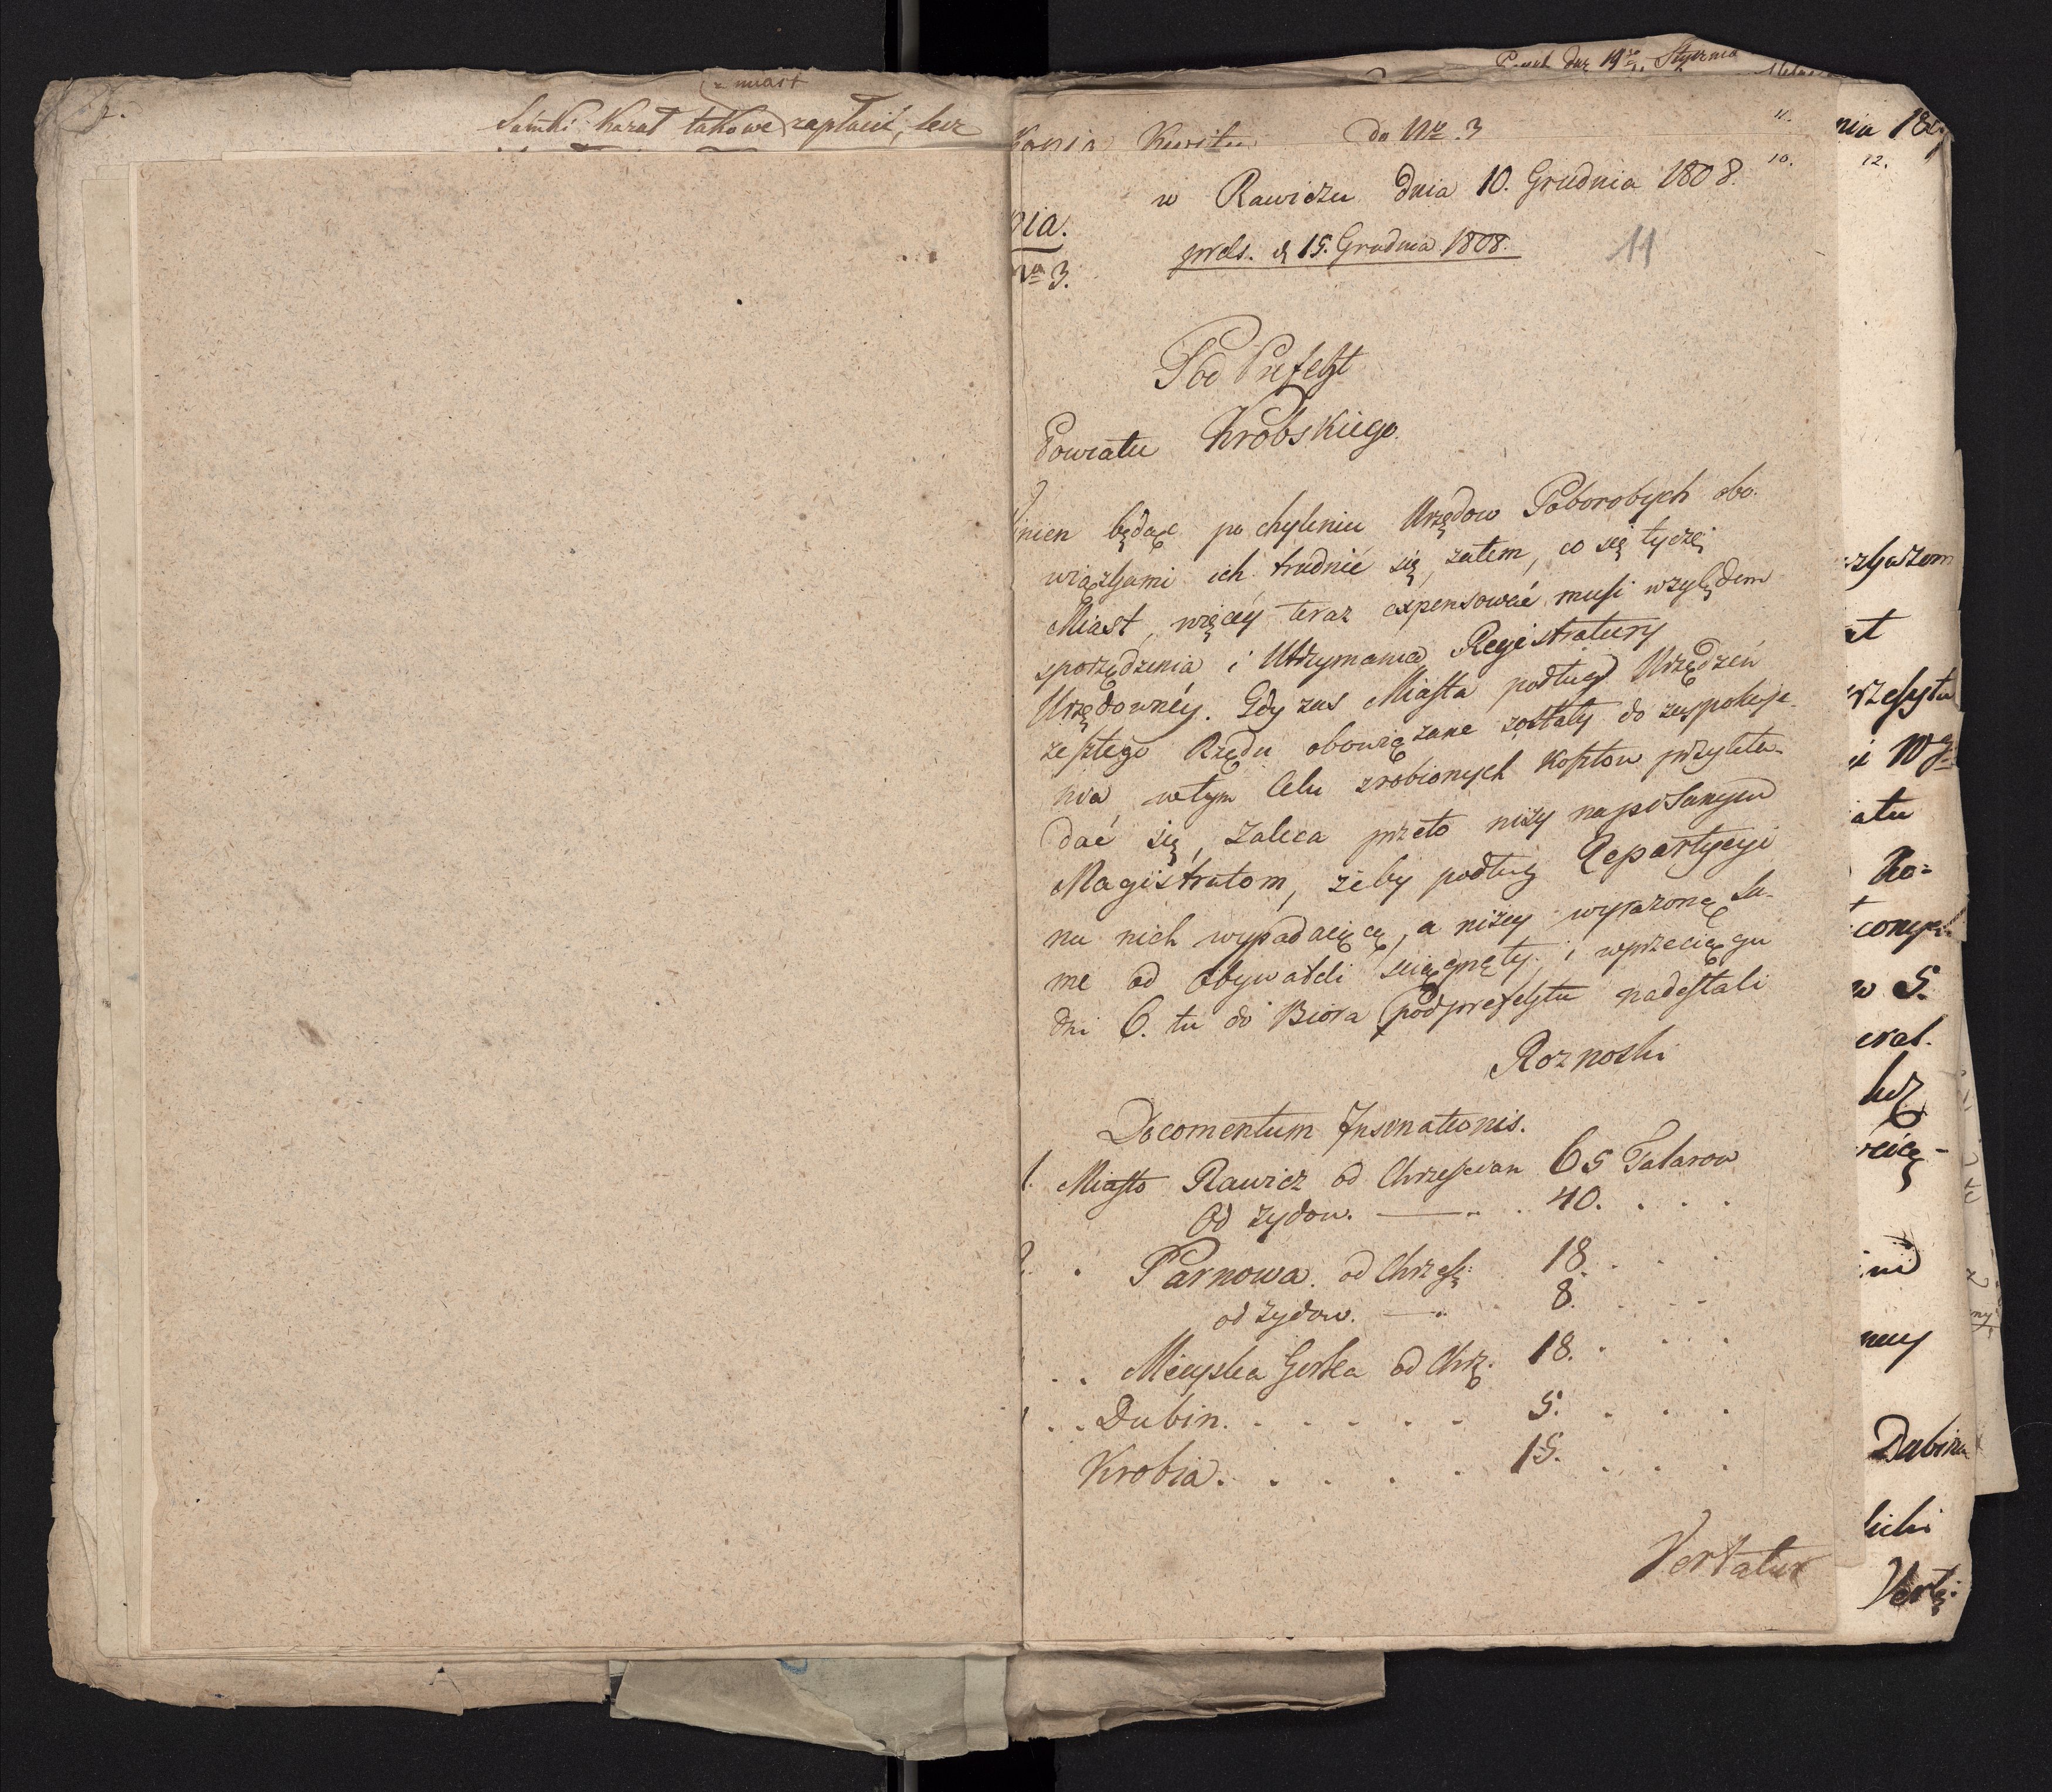 z miast
Sumki kazał takowe zapłacić, lecz
Kwitu do Nr. 3
11.
10.
w Rawiczu dnia 10. Grudnia 1808.
prds. d 15. Grudnia 1808.
11
nia.
3.
Pod Prefekt
Powiatu Krobskiego
winien będąc po chyleniu Urzędow Poborobych obo-
wiązkami ich trudnić się, zatem, co się tycze
Miast, więcey teraz expensować musi względem
sporządzenia i Utrzymania Registratury
Urzędowney. Gdy zas Miasta podług Urządzeń
zeszłego Rządu obowiązane zostały do zaspokoje-
nia wtym Celu zrobionych kosztow przykła-
dać się, zaleca przeto niży napisanym
Magistratom, żeby podług Repartycyi
na nich wypadaiącą, a niżey wyrażoną Su-
me od Obywateli ściągnęły i wprzeciągu
dni 6. tu do Biora podprefektu nadesłali
Roznoski
Documentum Insinationis.
1. Miasto Rawicz od Chrzescian 65 Talarow
Od Zydow. — . 40. . . .
2. . Sarnowa. od Chrześ: 18. . .
od Zydow. — . 8. . .
. . Mieyska Gorka od Chrz. 18. . .
. . Dubin. . . . . . 5. . . .
Krobia. . . . . . 15. . . .
Vertatur
12.
Dubin
Vert: